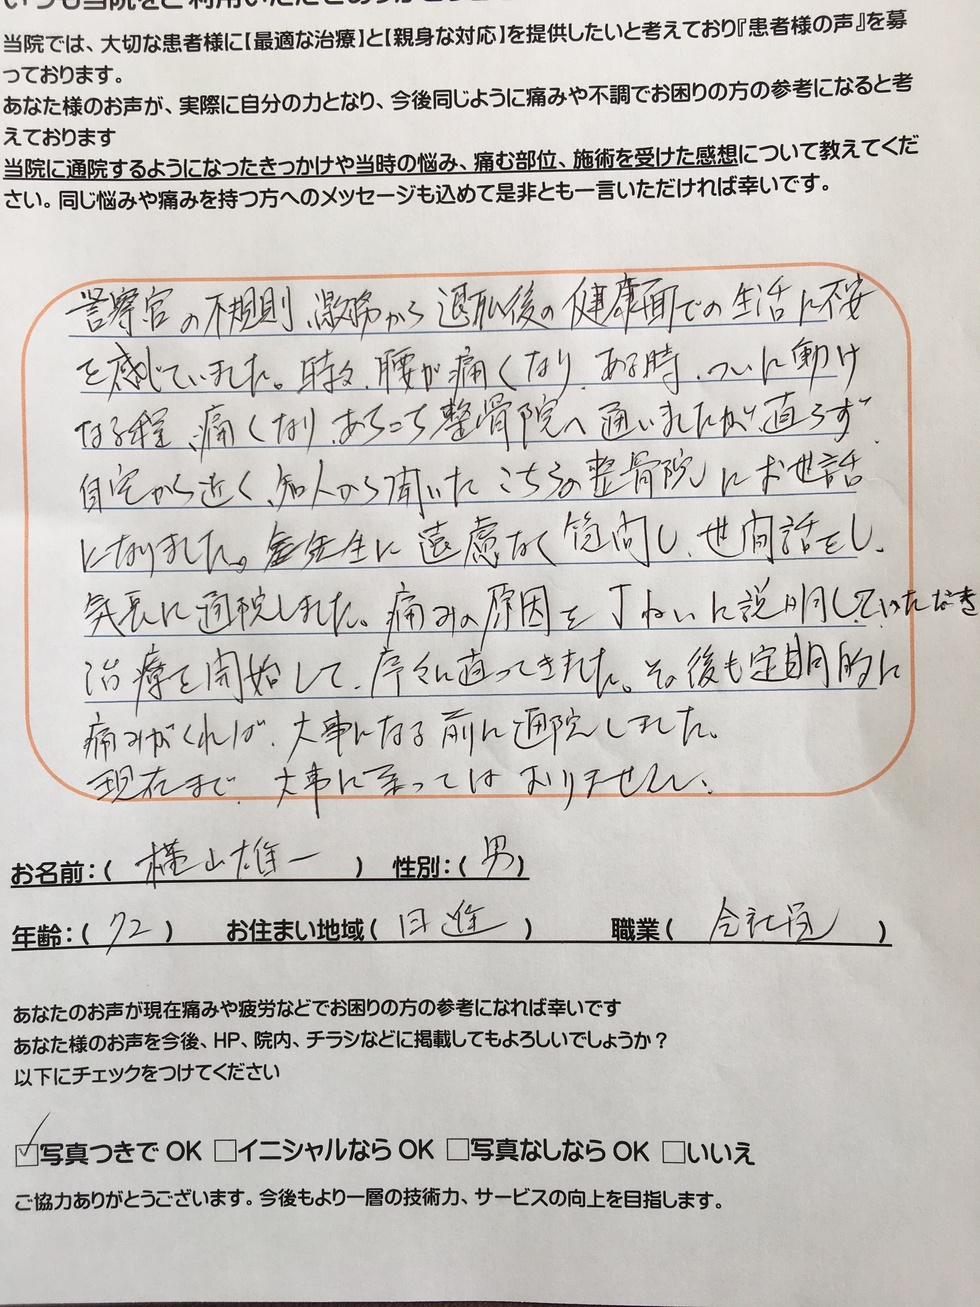 いつも当院をご利用いただきありがとう
当院では、大切な患者様に【最適な治療】と【親身な対応】を提供したいと考えており『患者様の声』を募
っております。
あなた様のお声が、実際に自分の力となり、今後同じように痛みや不調でお困りの方の参考になると考
えております
当院に通院するようになったきっかけや当時の悩み、痛む部位、施術を受けた感想について教えてくだ
さい。同じ悩みや痛みを持つ方へのメッセージも込めて是非とも一言いただければ幸いです。
警察官の不規則、激務から退職後の健康面での生活に不安
を感じていました。時々、腰が痛くなり、ある時、ついに動け
なる程、痛くなり、あちこち整骨院へ通いましたが直らず、
自宅から近く、知人から聞いたこちらの整骨院にお世話
になりました。先生に遠慮なく質問し、世間話をし、
気長に通院しました。痛みの原因を丁ねいに説明していただき
治療を開始して、序々に直ってきました。その後も定期的に
痛みがくれば、大事になる前に通院しました。
現在まで、大事に至ってはおりません。
お名前：( 横山雄一 ) 性別：( 男 )
年齢：( 72 ) お住まい地域( 日進 ) 職業( 会社員 )
あなたのお声が現在痛みや疲労などでお困りの方の参考になれば幸いです
あなた様のお声を今後、HP、院内、チラシなどに掲載してもよろしいでしょうか？
以下にチェックをつけてください
☑写真つきで OK □イニシャルなら OK □写真なしなら OK □いいえ
ご協力ありがとうございます。今後もより一層の技術力、サービスの向上を目指します。